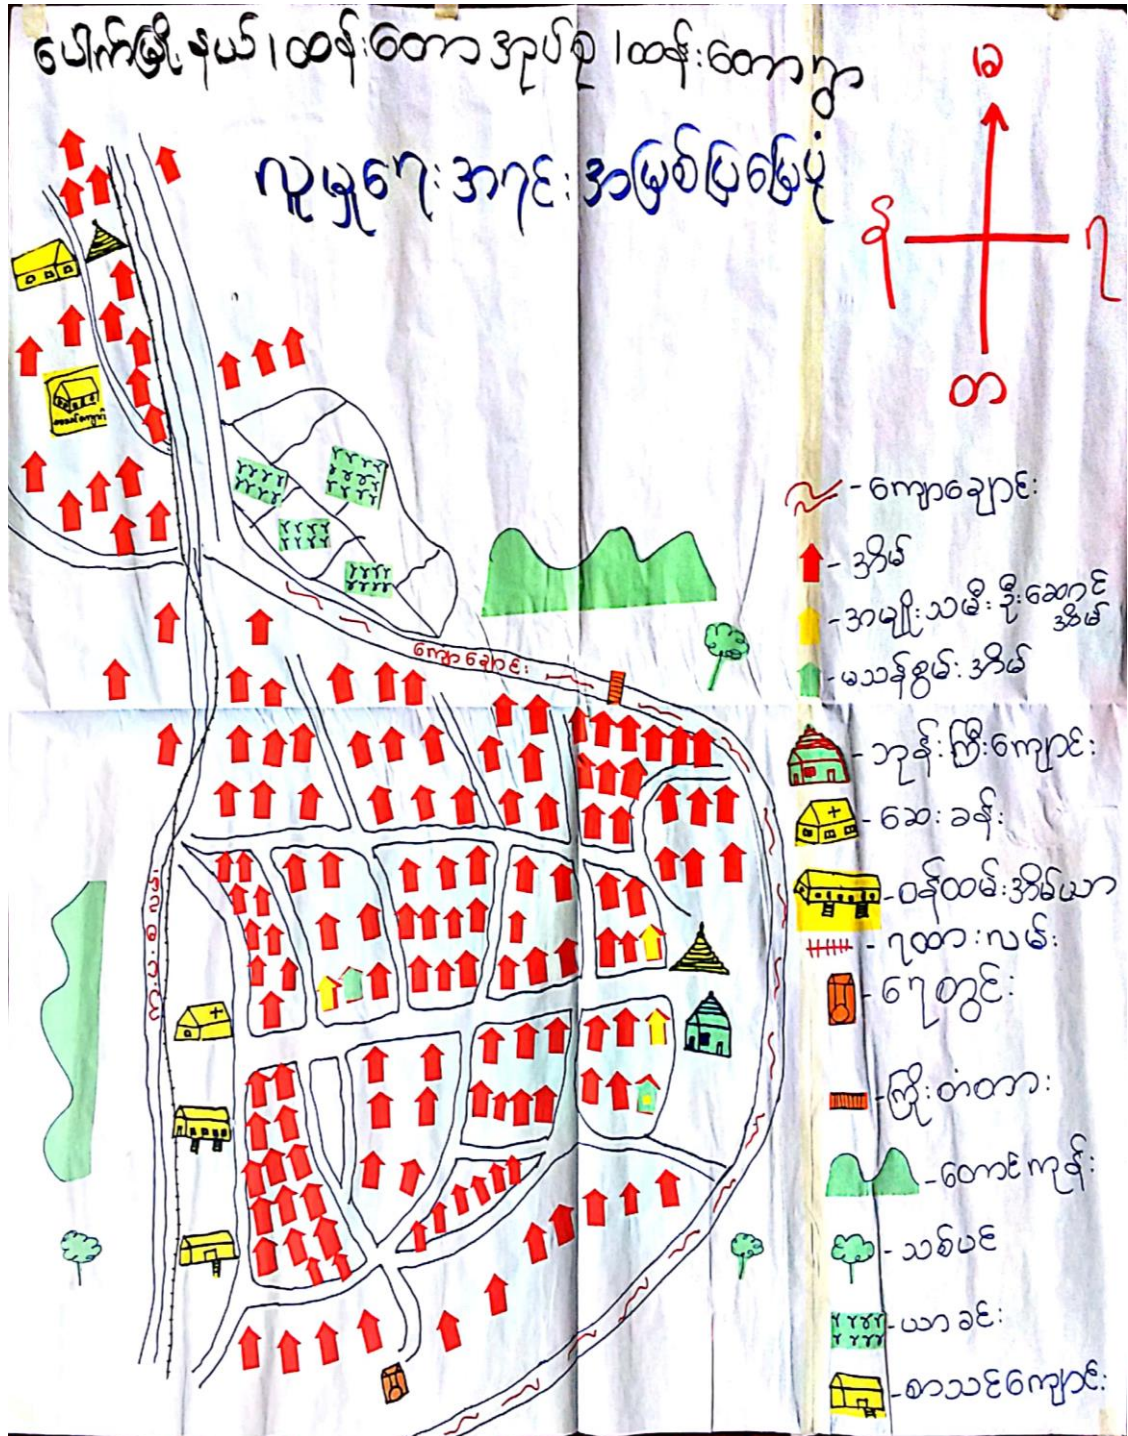 ပေါက်မြို့နယ်၊ထန်းတောအုပ်စု၊ထန်းတောရွာ
လူမှုရေးအရင်းအမြစ်ပြမြေပုံ
မ
န
ရ
တ
ကျောချောင်း
-ကျောချောင်း
-အိမ်
-အမျိုးသမီးဦးဆောင်
အိမ်
-မသန်စွမ်းအိမ်
-ဘုန်းကြီးကျောင်း
-ဆေးခန်း
-ဝန်ထမ်းအိမ်ယာ
-ရထားလမ်း
-ရေတွင်း
-ကြိုးတံတား
-တောင်ကုန်း
-သစ်ပင်
-ယာခင်း
-စာသင်ကျောင်း